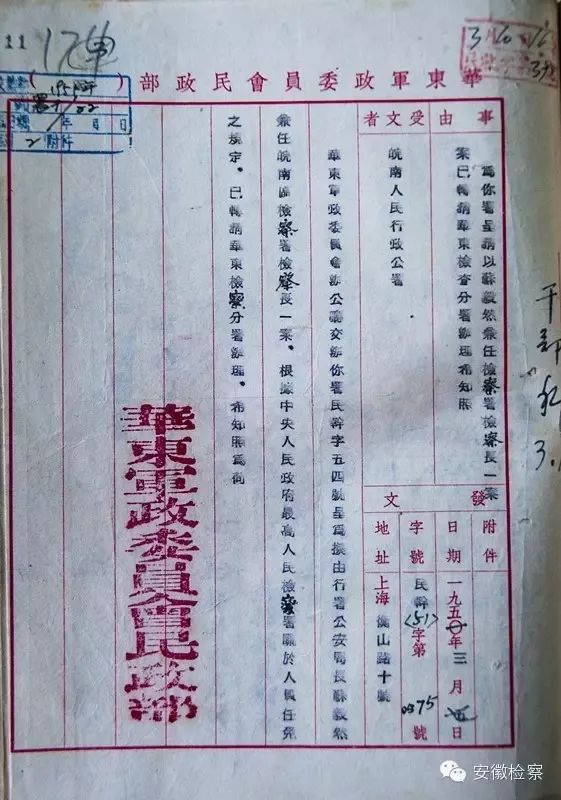 11
華東軍政委員會民政部
事由
為你署呈請以蘇毅然兼任檢察署檢察長一案
案已轉請華東檢查分署辦理希知照
受文者
皖南人民行政公署
發文
附件
日期 一九五 年三月 日
字號 民幹(51)字第 75號
地址 上海衡山路十號
華東軍政委員會辦公廳交辦你署民幹字五四號呈為擬由行署公安局長蘇毅然
兼任皖南區檢察署檢察長一案。根據中央人民政府最高人民檢察署關於人員任免
之規定。已轉請華東檢察分署辦理。希知照為何
華東軍政委員會民政部
年 月 日
2 附件
安徽检察